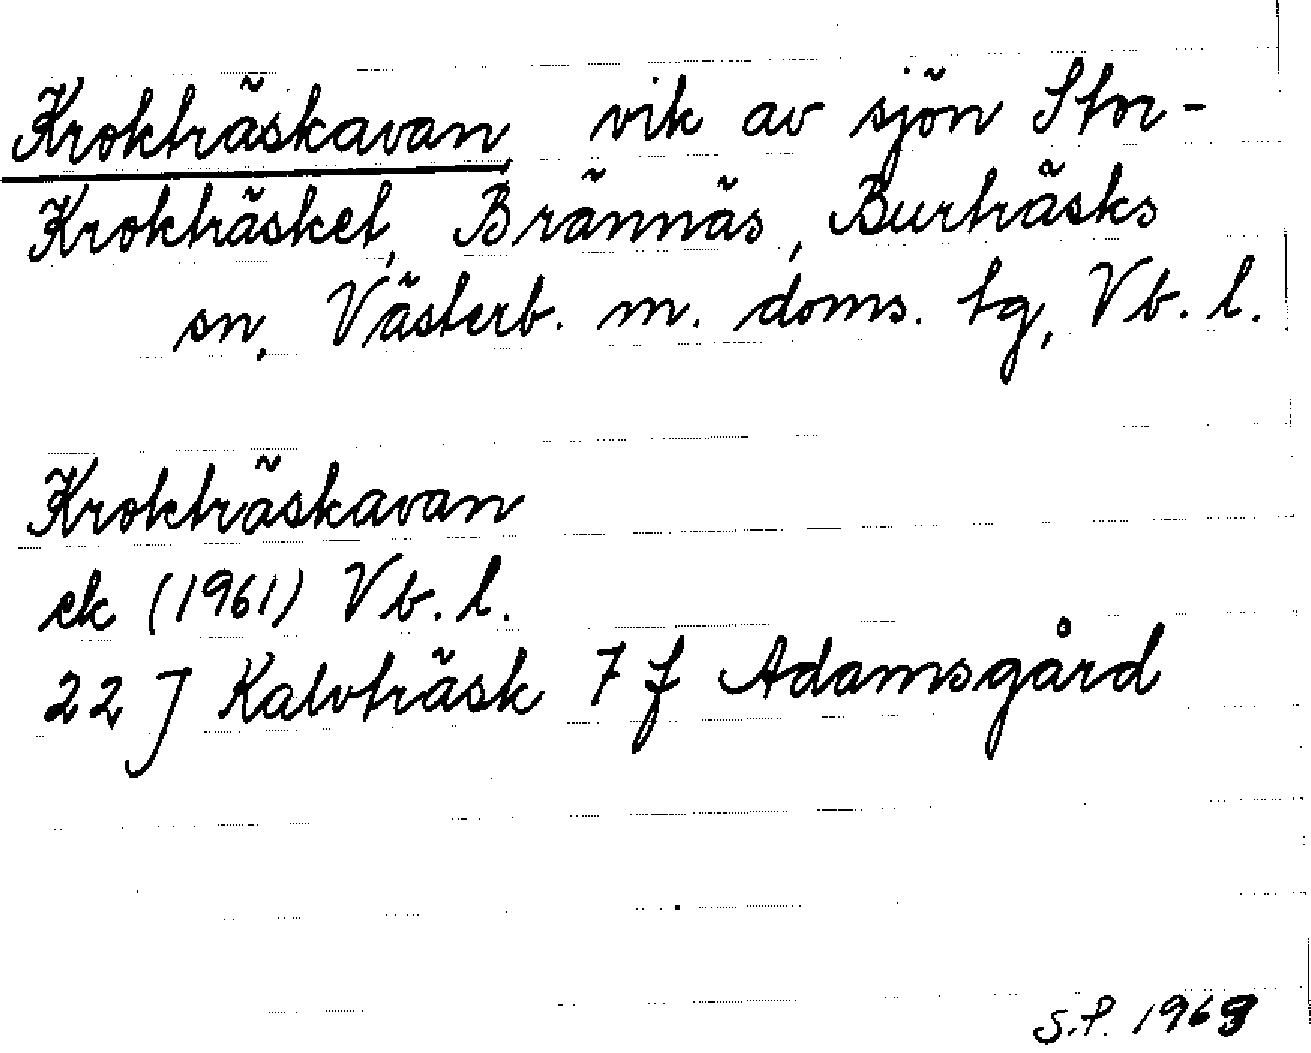 Krokträskavan, vik av sjön Stor-
Krokträsket, Brännäs, Burträsks
sn, Västerb. m. doms. tg, Vb. l.
Krokträskavan
ek (1961) Vb. l.
22 J Kalvträsk 7 f Adamsgård
S.P. 1968